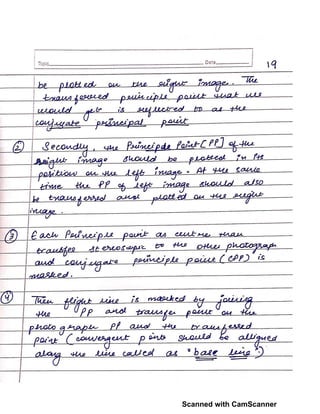 Topic Date
19
be plotted on the right image. The
transferred principle point that we
would get is reflected to as the
conjugate principal point
② Secondly, the Principle Point [PP] of the
right image should be plotted in its
position on the left image. At the same
time the PP of left image should also
be transferred and plotted on the right
image.
③ Each Principle point as centre than
transfer stereoscopic to the other photograph
and conjugate principle point (CPP) is
marked.
④ Then flight line is marked by joining
the PP and transfer point on the
photograph PP and the transferred
point (convergent points should be alligned
along the line called as "base line")
Scanned with CamScanner